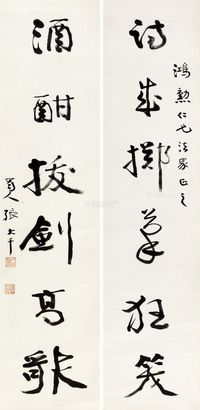 鴻勳仁兄法家正之
詩成擲筆狂笑
酒酣拔劍高歌
蜀人張大千